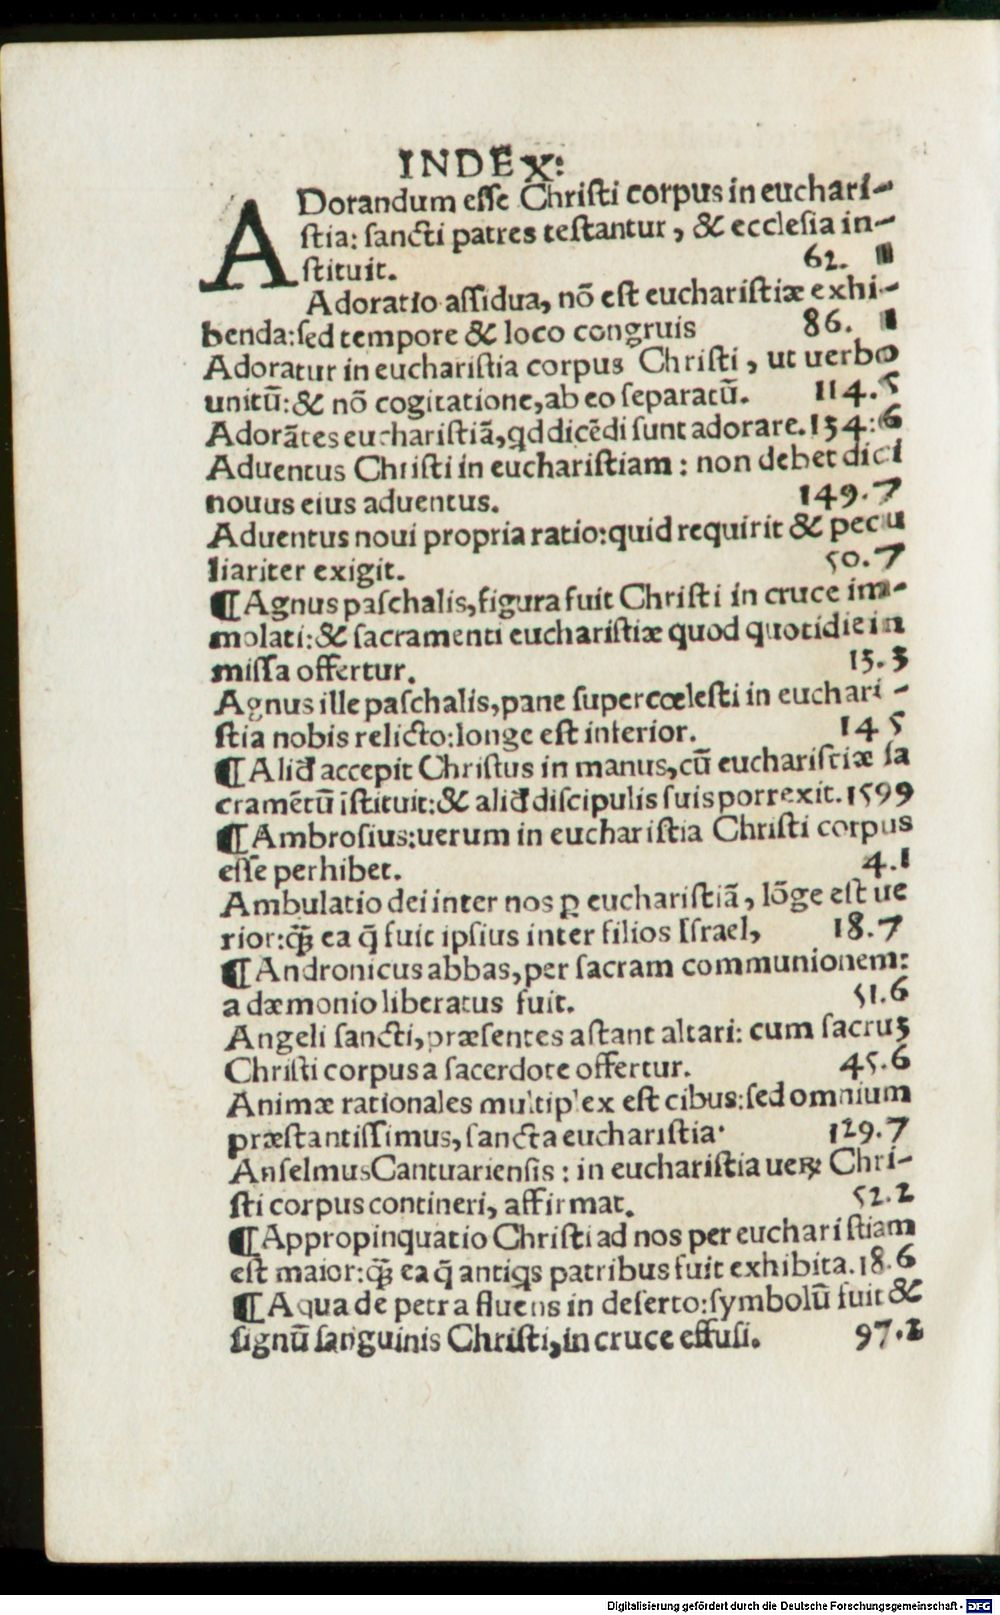 INDEX:
ADorandum esse Christi corpus in euchari-
stia: sancti patres testantur, & ecclesia in-
stituit. 62.
Adoratio assidua, nõ est eucharistiæ exhi-
benda:sed tempore & loco congruis 86.
Adoratur in eucharistia corpus Christi, ut uerbo
unitũ:& nõ cogitatione,ab eo separatũ. 114.5
Adorãtes eucharistiã,qd dicẽdi sunt adorare.154:6
Aduentus Christi in eucharistiam: non debet dici
nouus eius aduentus. 149.7
Aduentus noui propria ratio:quid requirit & pecu
liariter exigit. 50.7
¶Agnus paschalis,figura fuit Christi in cruce im-
molati:& sacramenti eucharistiæ quod quotidie in
missa offertur. 15.5
Agnus ille paschalis,pane supercœlesti in euchari-
stia nobis relicto:longe est inferior. 14 5
¶Aliđ accepit Christus in manus,cũ eucharistiæ sa
cramẽtũ ĩstituit:& aliđ discipulis suis porrexit.1599
¶Ambrosius:uerum in eucharistia Christi corpus
esse perhibet. 4.1
Ambulatio dei inter nos ꝑ eucharistiã, lõge est ue
rior:q̃ꝫ ea q̃ fuit ipsius inter filios Israel, 18.7
¶Andronicus abbas,per sacram communionem:
a dæmonio liberatus fuit. 51.6
Angeli sancti,præsentes astant altari: cum sacruꝫ
Christi corpus a sacerdote offertur. 45.6
Animæ rationales multiplex est cibus:sed omnium
præstantissimus,sancta eucharistia· 129.7
AnselmusCantuariensis: in eucharistia ueꝝ Chri-
sti corpus contineri, affirmat. 52.2
¶Appropinquatio Christi ad nos per eucharistiam
est maior:q̃ꝫ ea q̃ antiqs patribus fuit exhibita.18.6
¶Aqua de petra fluens in deserto:symbolũ fuit &
signũ sanguinis Christi,in cruce effusi. 97.2
Digitalisierung gefördert durch die Deutsche Forschungsgemeinschaft - DFG